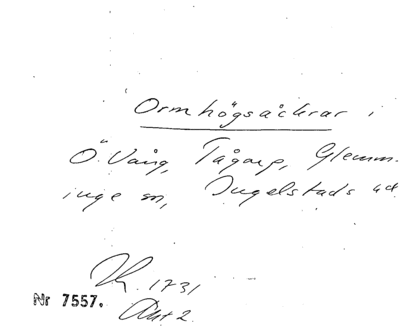 Ormhögsåkrar i
Ö. Vång, Tågarp, Glemm-
inge sn, Ingelstads hd
1731
Akt 2.
Nr 7557.